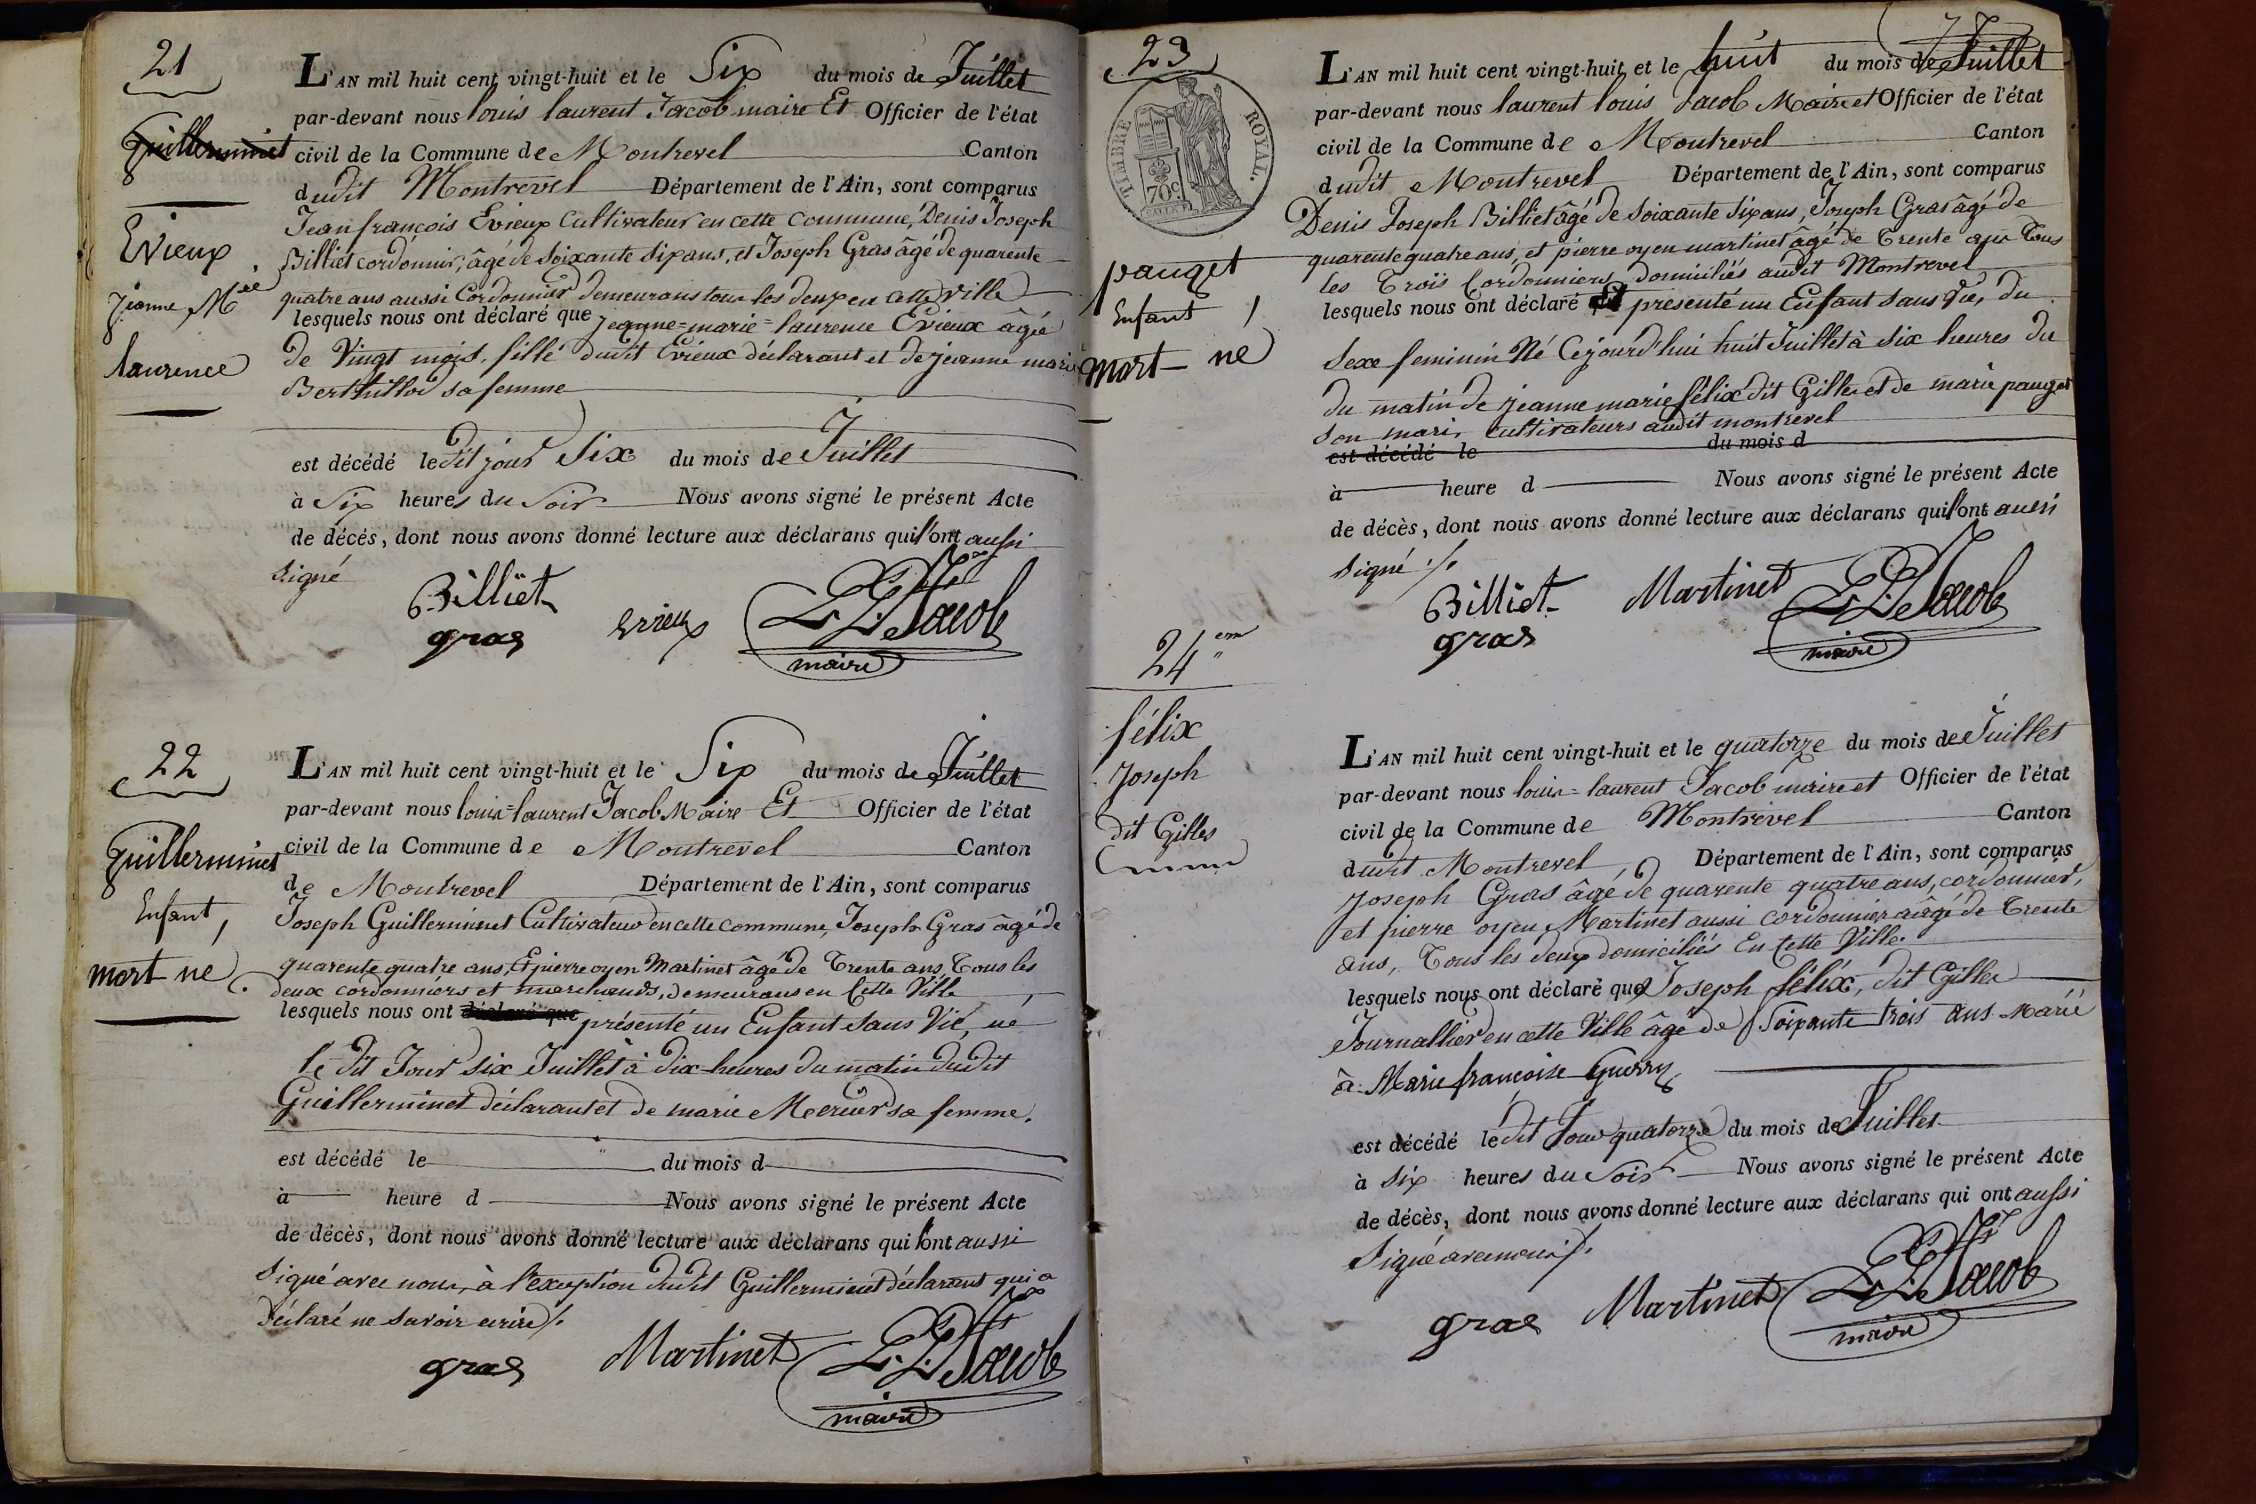 21
Guillerminet
Evieux
jeanne Mie
laurence
L'AN mil huit cent vingt-huit et le Six du mois de Juillet
par-devant nous louis laurent Jacob maire Et Officier de l'état
civil de la Commune de Montrevel Canton
dudit Montrevel Département de l'Ain, sont comparus
Jean françois Evieux Cultivateur en cette Commune, Denis Joseph
Billiet cordonnier, âgé de Soixante Six ans, et Joseph Gras âgé de quarente
quatre ans aussi Cordonnier demeurans tous les deux en cette Ville
lesquels nous ont déclaré que jeanne=marie=laurence Evieux âgée
de Vingt mois, fille dudit Evieux déclarant et de jeanne marie
Berthillod sa femme
est décédé le dit jour Six du mois de Juillet
à Six heures du Soir Nous avons signé le présent Acte
de décès, dont nous avons donné lecture aux déclarans qui l'ont aussi
signé
Billiet
gras
Evieux
L. L. Jacob
maire
22
Guillerminet
Enfant
mort né
L'AN mil huit cent vingt-huit et le Six du mois de Juillet
par-devant nous louis=laurent Jacob Maire Et Officier de l'état
civil de la Commune de Montrevel Canton
de Montrevel Département de l'Ain, sont comparus
Joseph Guillerminet Cultivateur en cette commune, Joseph Gras âgé de
quarente quatre ans, Et pierre oyen Martinet âgé de Trente ans, Tous les
deux cordonniers et marchands, demeurans en Cette Ville
lesquels nous ont déclaré que présenté un Enfant Sans Vie, né
le dit Jour Six Juillet à dix heures du matin dudit
Guillerminet déclarant et de marie Mercier sa femme.
est décédé le du mois d
à heure d Nous avons signé le présent Acte
de décès, dont nous avons donné lecture aux déclarans qui l'ont aussi
Signé avec nous, à l'exception dudit Guillerminet déclarant qui a
déclaré ne Savoir ecrire /.
gras
Martinet
L. L. Jacob
maire
23
TIMBRE ROYAL.
70c.
pauget
Enfant
mort né
L'AN mil huit cent vingt-huit et le huit du mois de Juillet
par-devant nous laurent louis Jacob Maire et Officier de l'état
civil de la Commune de Montrevel Canton
dudit Montrevel Département de l'Ain, sont comparus
Denis Joseph Billiet âgé de Soixante Six ans, Joseph Gras âgé de
quarente quatre ans, et pierre oyen martinet âgé de Trente ans Tous
les Trois Cordonniers domiciliés audit Montrevel
lesquels nous ont déclaré présenté un Enfant Sans Vie, du
Sexe feminin Né Cejourd'hui huit Juillet à Six heures du
du matin de jeanne marie félix dit Gilles et de marie pauget
Son mari, Cultivateurs audit montrevel
est décédé le du mois d
à heure d Nous avons signé le présent Acte
de décès, dont nous avons donné lecture aux déclarans qui l'ont aussi
Signé ./.
Billiet
gras
Martinet
L. L. Jacob
maire
24em
félix
Joseph
dit Gilles
L'AN mil huit cent vingt-huit et le quatorze du mois de Juillet
par-devant nous louis=laurent Jacob maire et Officier de l'état
civil de la Commune de Montrevel Canton
dudit Montrevel Département de l'Ain, sont comparus
Joseph Gras âgé de quarente quatre ans, cordonnier,
et pierre oyen Martinet aussi cordonnier âgé de Trente
ans, Tous les deux domiciliés En Cette Ville.
lesquels nous ont déclaré que Joseph félix, dit Gilles
Journallier en cette Ville âgé de Soixante trois ans Marié
à Marie françoise Guerry
est décédé le dit Jour quatorze du mois de Juillet
à Six heures du Soir Nous avons signé le présent Acte
de décès, dont nous avons donné lecture aux déclarans qui ont aussi
Signé avec nous /.
gras
Martinet
L. L. Jacob
maire